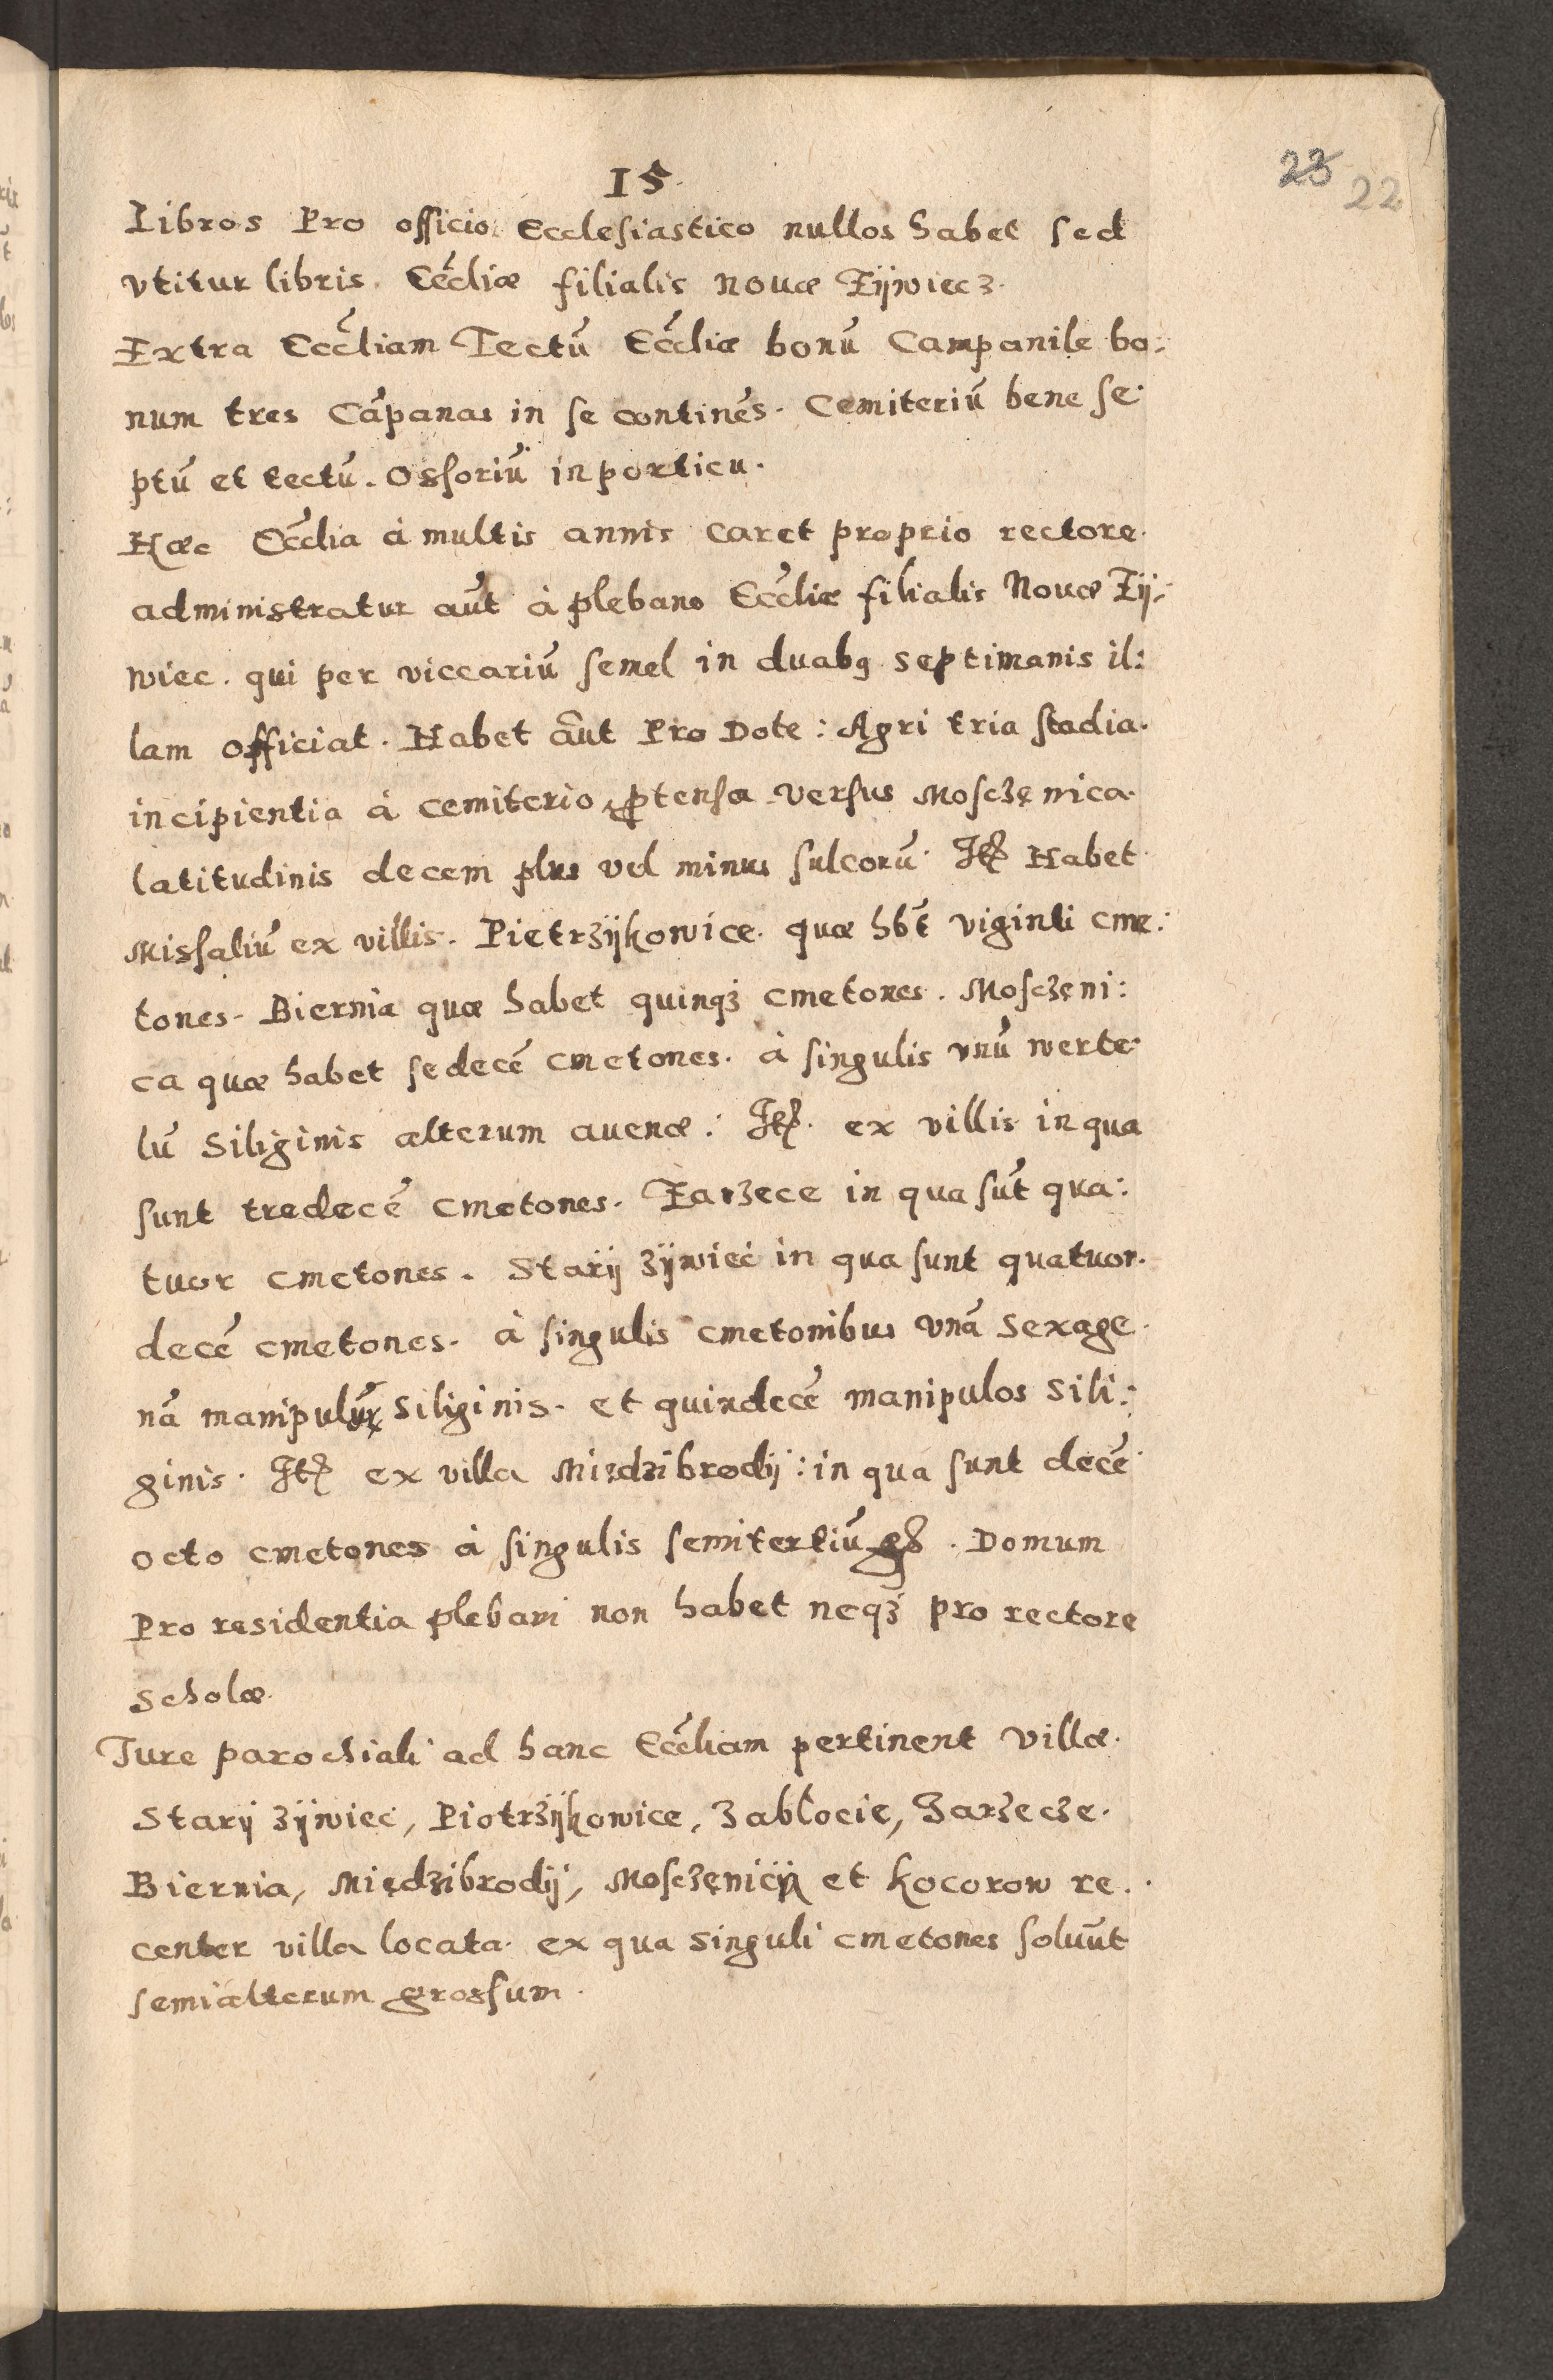 15
23 22
Libros Pro officio Ecclesiastico nullos habet sed
vtitur libris Eccłiæ filialis nouæ Zÿwiecz.
Extra Eccłiam Tectū Eccłiæ bonū Campanile bo:
num tres Cāpanas in se continēs. Cemiteriū bene se
ptū et tectū. Osſoriū in porticu.
Hæc Eccłia à multis annis caret proprio rectore.
administratur aūt à plebano Eccłiæ filialis Nouæ Zÿ:
wiec. qui per viccariū semel in duabꝯ septimanis il:
lam officiat. Habet aūt Pro Dote: Agri tria stadia.
incipientia à cemiterio ꝓtensa versus Moſczęnica.
latitudinis decem plus vel minus sulcorū. Itꝫ Habet
Misſaliū ex villis. Pietrzÿkowice. quæ hb̄t viginti cme:
tones. Biernia quæ habet quinqꝫ cmetones. Moſczęni:
ca quæ habet sedecē cmetones. à singulis vnū werte
lū Siliginis alterum auenæ: Itꝫ. ex villis in qua
sunt tredecē cmetones. Zarzece in qua sūt qua:
tuor cmetones. Starÿ zÿwiec in qua sunt quatuor.
decē cmetones. à singulis cmetonibus vnā sexage
nā manipulūꝝ siliginis. et quindecē manipulos sili:
ginis. Itꝫ ex villa Miedzibrodÿ: in qua sunt decē
octo cmetones à singulis semitertiū gꝭ. Domum
Pro residentia plebani non habet neqꝫ pro rectore
scholæ.
Jure parochiali ad hanc Eccłiam pertinent villæ.
Starÿ zÿwiec, Piotrzÿkowice, Zabłocie, Zarzecze.
Biernia, Międzibrodÿ, Moſczęnicÿ et Kocorow re.
center villa locata. ex qua singuli cmetones soluūt
semialterum grosſum.